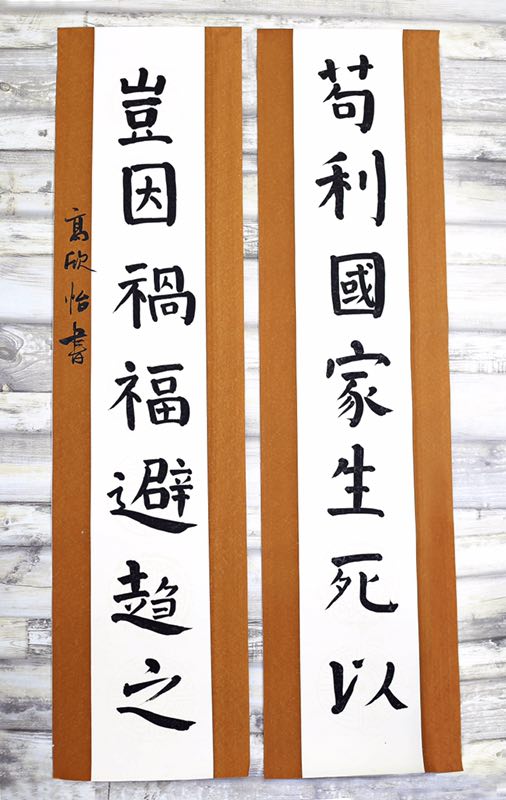 苟利國家生死以
豈因禍福避趨之
高欣怡書